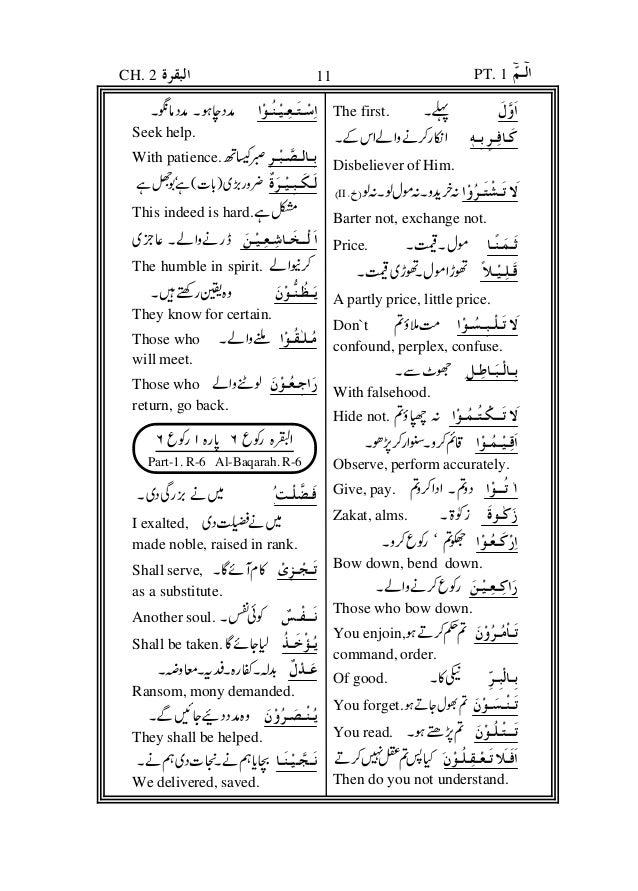 CH. 2 البقرة 11 PT. 1 الٓمّٓ
اَوَّلَ پہلے۔ The first.
كَافِرٍۭ بِهٖ انکار کرنے والے اس کے۔
Disbeliever of Him.
لَا تَشْتَرُوْا نہ خریدو۔ نہ مول لو۔ نہ لو (خ.II)
Barter not, exchange not.
ثَمَنًا مول ۔ قیمت۔ Price.
قَلِيْلًا تھوڑا مول۔ تھوڑی قیمت۔
A partly price, little price.
لَا تَلْبِسُوْا مت ملاؤ تم Don`t
confound, perplex, confuse.
بِالْبَاطِلِ جھوٹ سے۔
With falsehood.
لَا تَكْتُمُوْا نہ چھپاؤ تم Hide not.
اَقِيْمُوْا قائم کرو۔ سنوار کر پڑھو۔
Observe, perform accurately.
اٰتُوْا دو تم ۔ ادا کرو تم Give, pay.
زَكٰوةَ زکوٰة۔ Zakat, alms.
اِرْكَعُوْا جھکو تم ‘ رکوع کرو۔
Bow down, bend down.
رَاكِعِيْنَ رکوع کرنے والے۔
Those who bow down.
تَاْمُرُوْنَ تم حکم کرتے ہو You enjoin,
command, order.
بِالْبِرِّ نیکی کا۔ Of good.
تَنْسَوْنَ تم بھول جاتے ہو You forget.
تَتْلُوْنَ تم پڑھتے ہو۔ You read.
اَفَلَا تَعْقِلُوْنَ کیا پس تم عقل نہیں کرتے
Then do you not understand.
اِسْتَعِيْنُوْا مدد چاہو۔ مدد مانگو۔
Seek help.
بِالصَّبْرِ صبر کیساتھ With patience.
لَكَبِيْرَةٌ ضرور بڑی (بات) ہے، بوجھل ہے
مشکل ہے۔ This indeed is hard.
اَلْخَاشِعِيْنَ ڈرنے والے۔ عاجزی
کرنیوالے The humble in spirit.
يَظُنُّوْنَ وہ یقین رکھتے ہیں۔
They know for certain.
مُلٰقُوْا ملنے والے۔ Those who
will meet.
رَاجِعُوْنَ لوٹنے والے Those who
return, go back.
البقرہ رکوع ۶ پارہ ۱ رکوع ۶
Part-1. R-6 Al-Baqarah. R-6
فَضَّلْتُ میں نے بزرگی دی۔
میں نے فضیلت دی I exalted,
made noble, raised in rank.
تَجْزِىْ کام آئے گا۔ Shall serve,
as a substitute.
نَفْسٌ کوئی نفس۔ Another soul.
يُؤْخَذُ لیا جائے گا Shall be taken.
عَدْلٌ بدلہ۔ کفارہ۔ فدیہ۔ معاوضہ۔
Ransom, mony demanded.
يُنْصَرُوْنَ وہ مدد دیئے جائیں گے۔
They shall be helped.
نَجَّيْنَا بچایا ہم نے۔ نجات دی ہم نے۔
We delivered, saved.